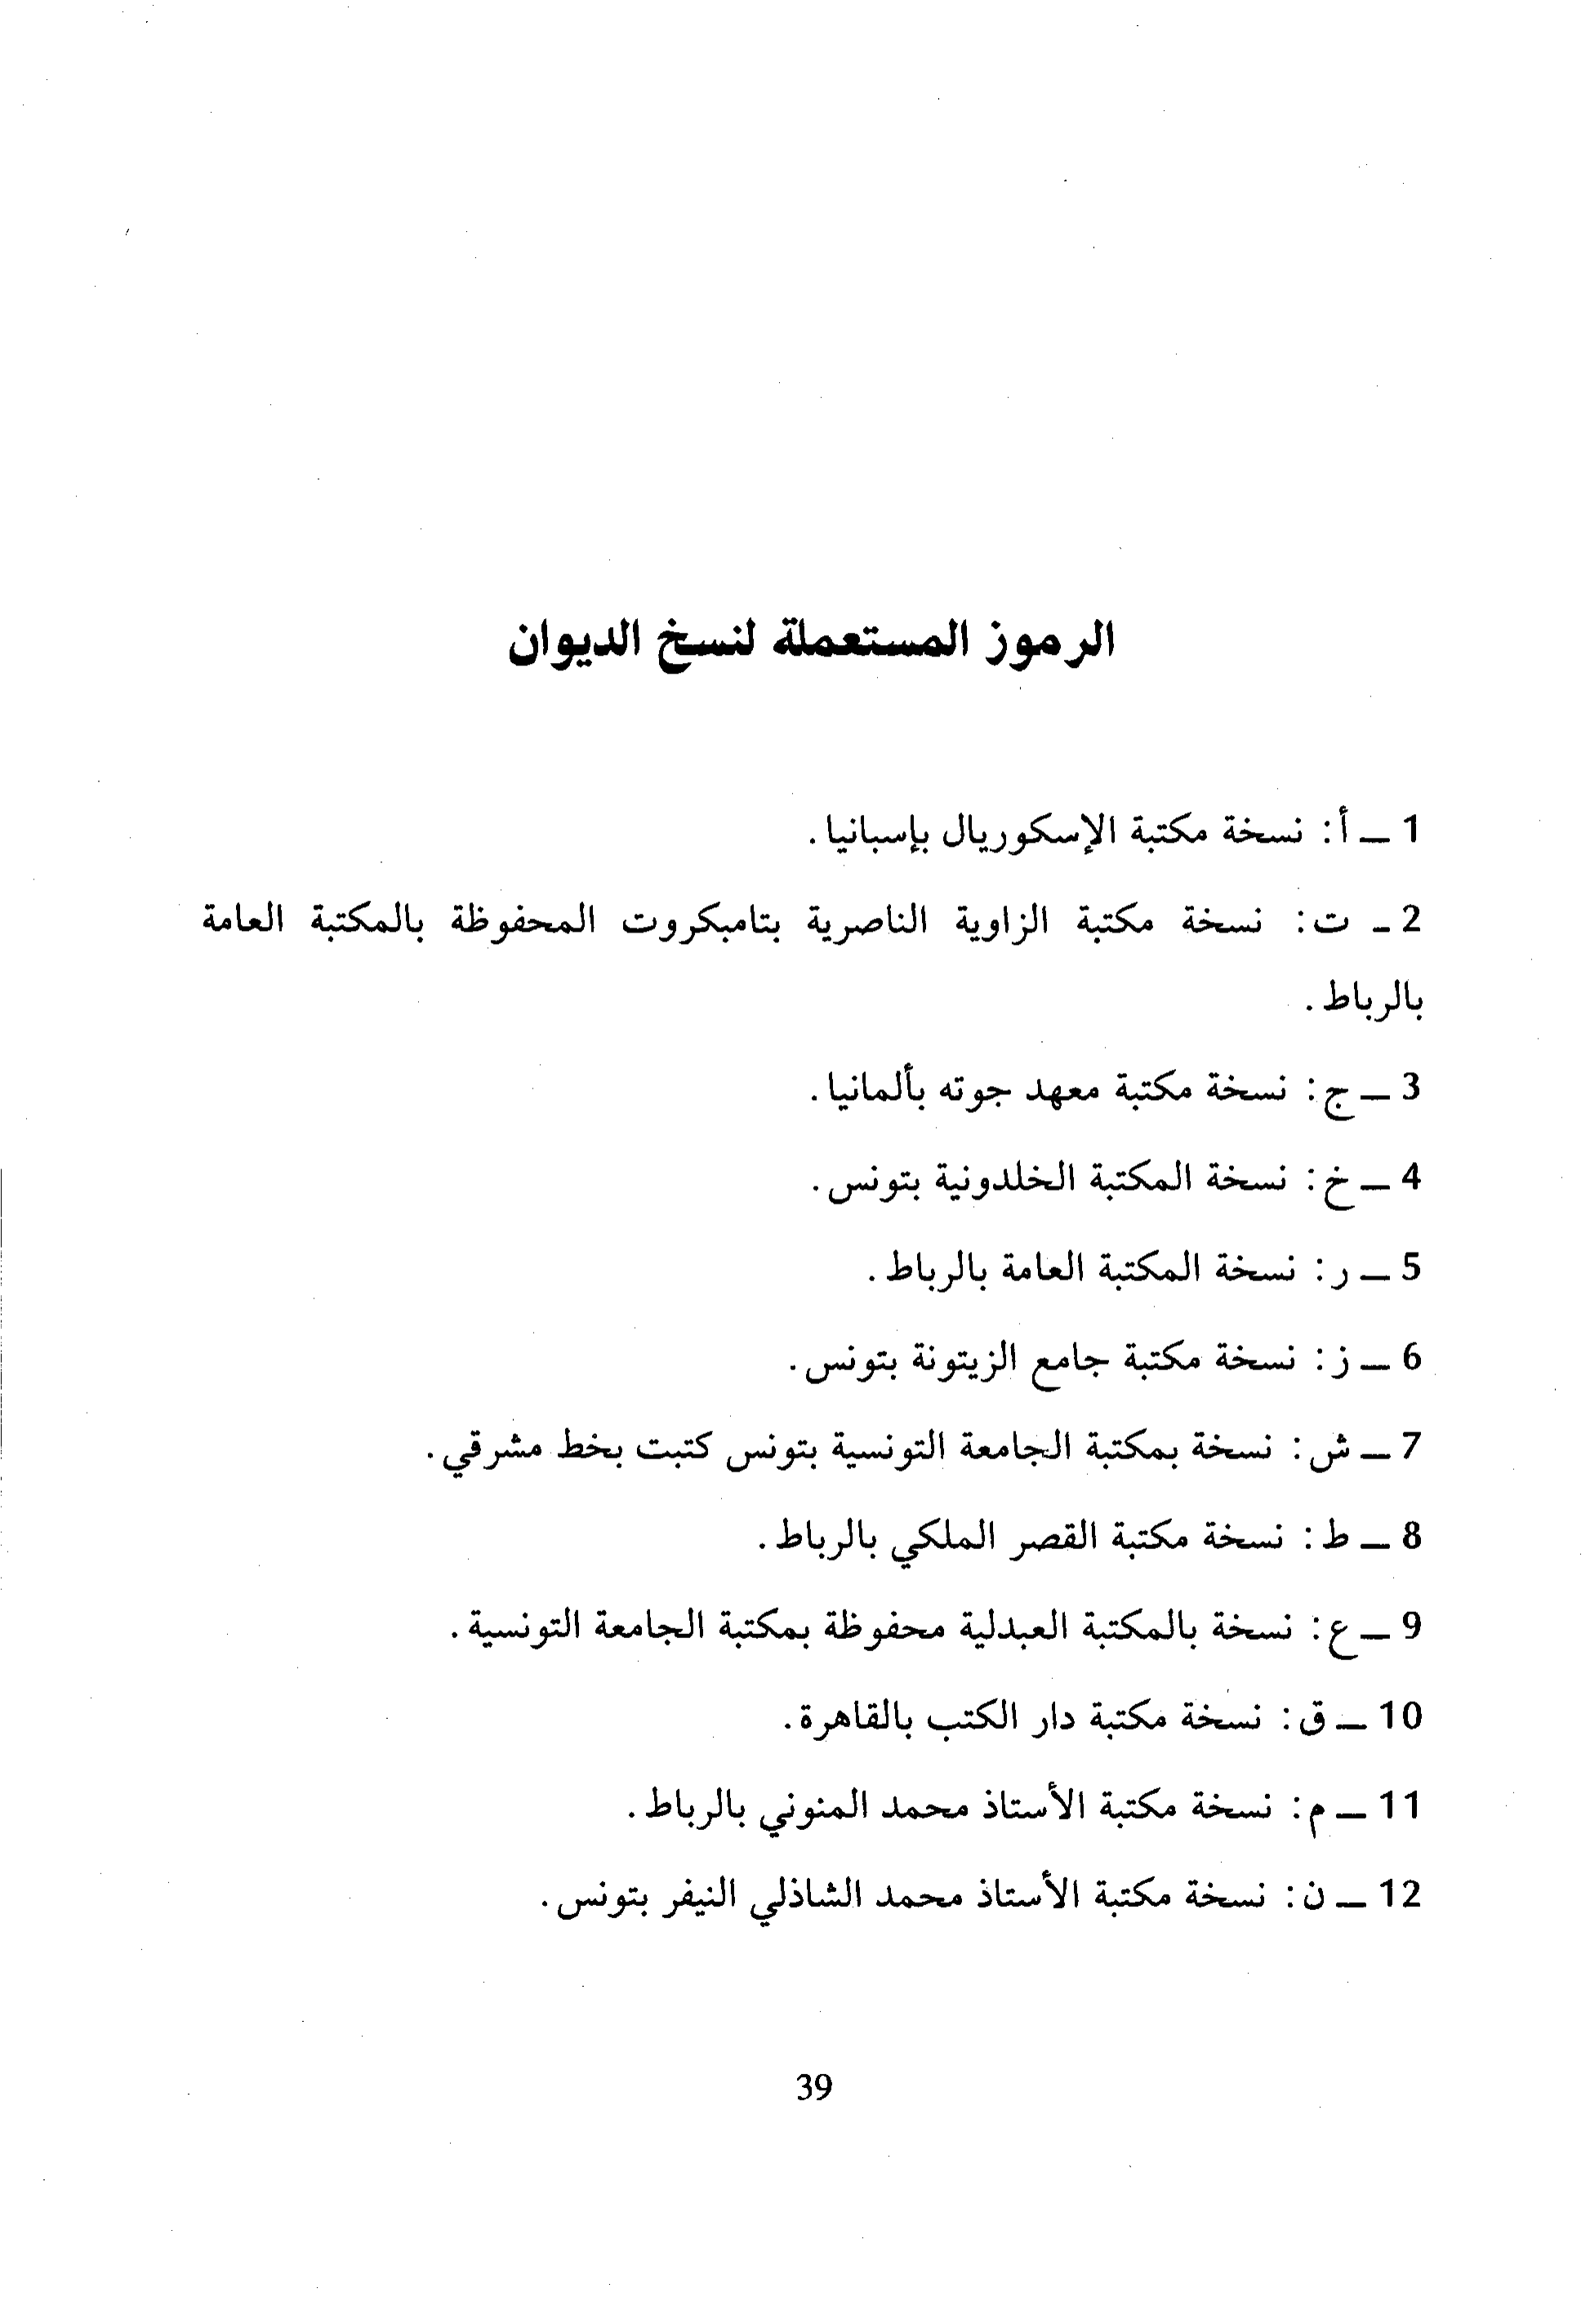 الرموز المستعملة لنسخ الديوان
1 ــ أ: نسخة مكتبة الإسكوريال بإسبانيا.
2 ـ ت: نسخة مكتبة الزاوية الناصرية بتامبكروت المحفوظة بالمكتبة العامة
بالرباط.
3 ــ ج: نسخة مكتبة معهد جوته بألمانيا.
4 ــ خ: نسخة المكتبة الخلدونية بتونس.
5 ــ ر: نسخة المكتبة العامة بالرباط.
6 ــ ز: نسخة مكتبة جامع الزيتونة بتونس.
7 ــ ش: نسخة بمكتبة الجامعة التونسية بتونس كتبت بخط مشرقي.
8 ــ ط: نسخة مكتبة القصر الملكي بالرباط.
9 ــ ع: نسخة بالمكتبة العبدلية محفوظة بمكتبة الجامعة التونسية.
10 ــ ق: نسخة مكتبة دار الكتب بالقاهرة.
11 ــ م: نسخة مكتبة الأستاذ محمد المنوني بالرباط.
12 ــ ن: نسخة مكتبة الأستاذ محمد الشاذلي النيفر بتونس.
39